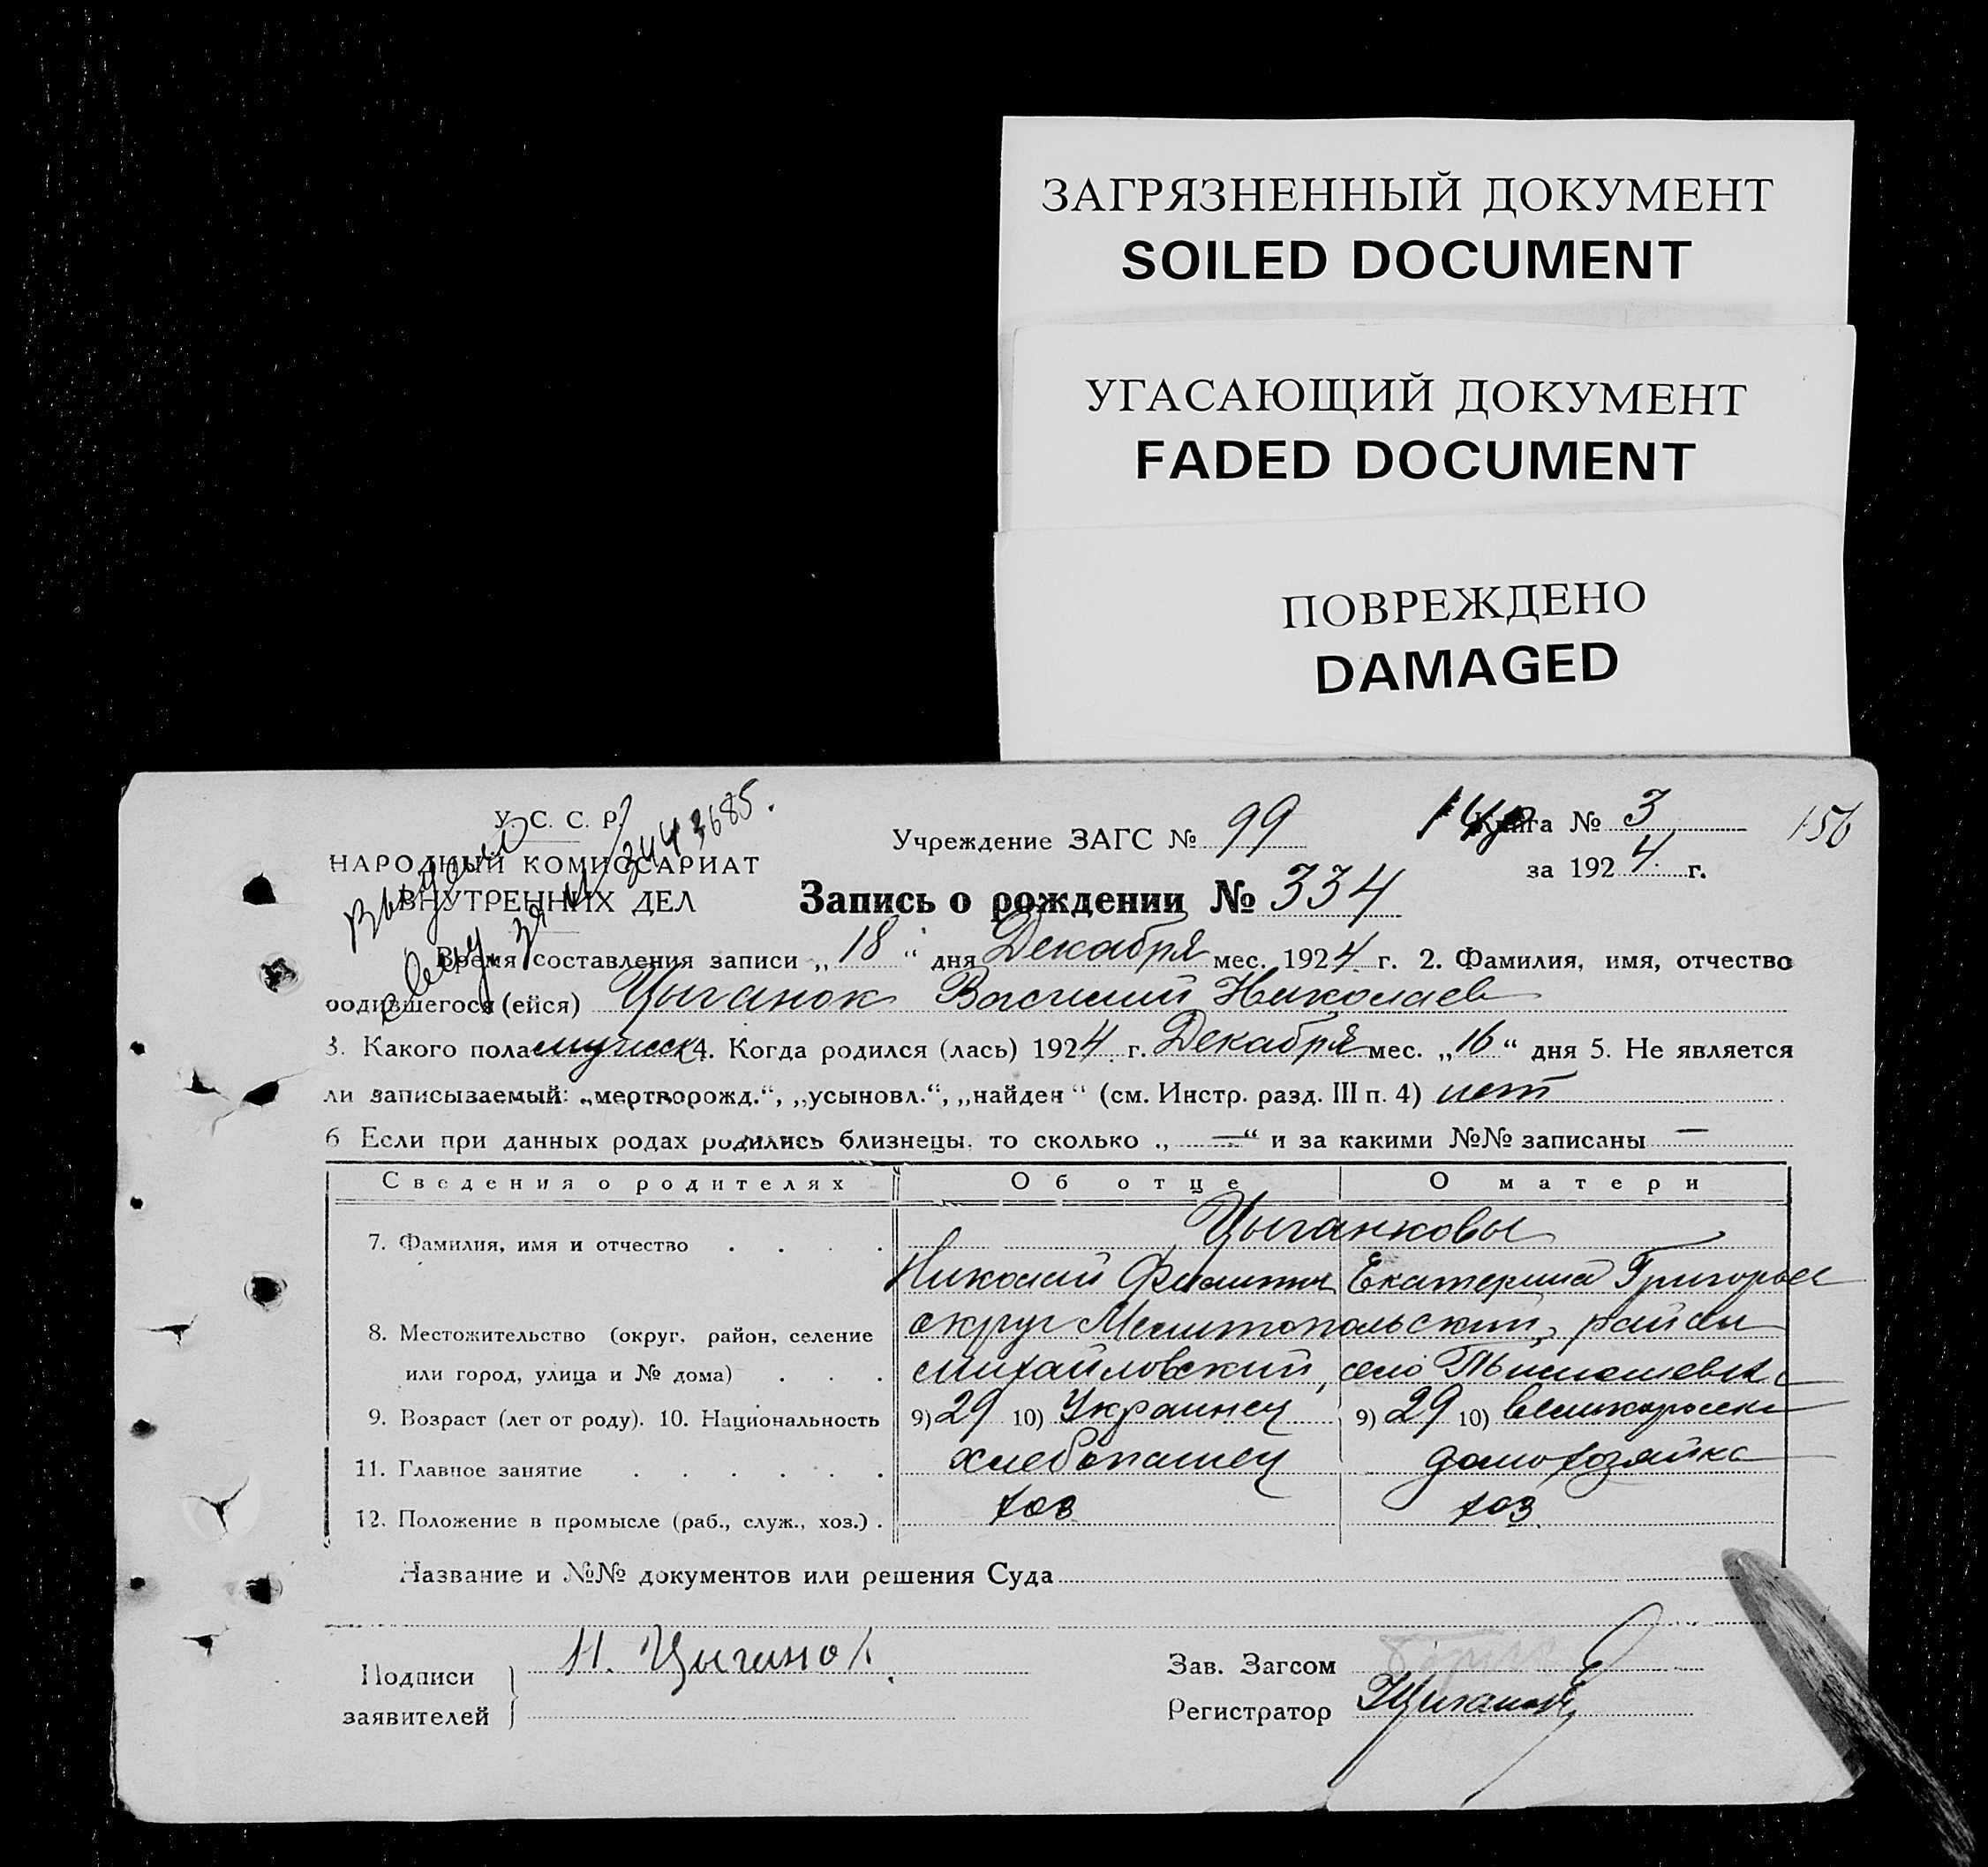 ЗАГРЯЗНЕННЫЙ ДОКУМЕНТ
SOILED DOCUMENT
УГАСАЮЩИЙ ДОКУМЕНТ
FADED DOCUMENT
ПОВРЕЖДЕНО
DAMAGED
У. С. С. Р.
НАРОДНЫЙ КОМИССАРИАТ
ВНУТРЕННИХ ДЕЛ
Учреждение ЗАГС № 99
Книга № 3
156
за 1924 г.
Запись о рождении № 334
Время составления записи „18“ дня Декабря мес. 1924 г. 2. Фамилия, имя, отчество
родившегося (ейся) Цыганок Василий Николаев
3. Какого пола мужск 4. Когда родился (лась) 1924 г. Декабря мес. „16“ дня 5. Не является
ли записываемый: „мертворожд.“, „усыновл.“, „найден“ (см. Инстр. разд. III п. 4) нет
6 Если при данных родах родились близнецы, то сколько „—“ и за какими №№ записаны —
Сведения о родителях Об отце О матери
7. Фамилия, имя и отчество Цыганковы
Николай Филипп Екатерина Григорьев
8. Местожительство (округ, район, селение округ Мелитопольский, район
или город, улица и № дома) михайловский, село
9. Возраст (лет от роду). 10. Национальность 9) 29 10) Украинец 9) 29 10) великоросска
11. Главное занятие хлебопашец домохозяйка
12. Положение в промысле (раб., служ., хоз.) хоз хоз
Название и №№ документов или решения Суда
Подписи заявителей Н. Цыганок
Зав. Загсом
Регистратор